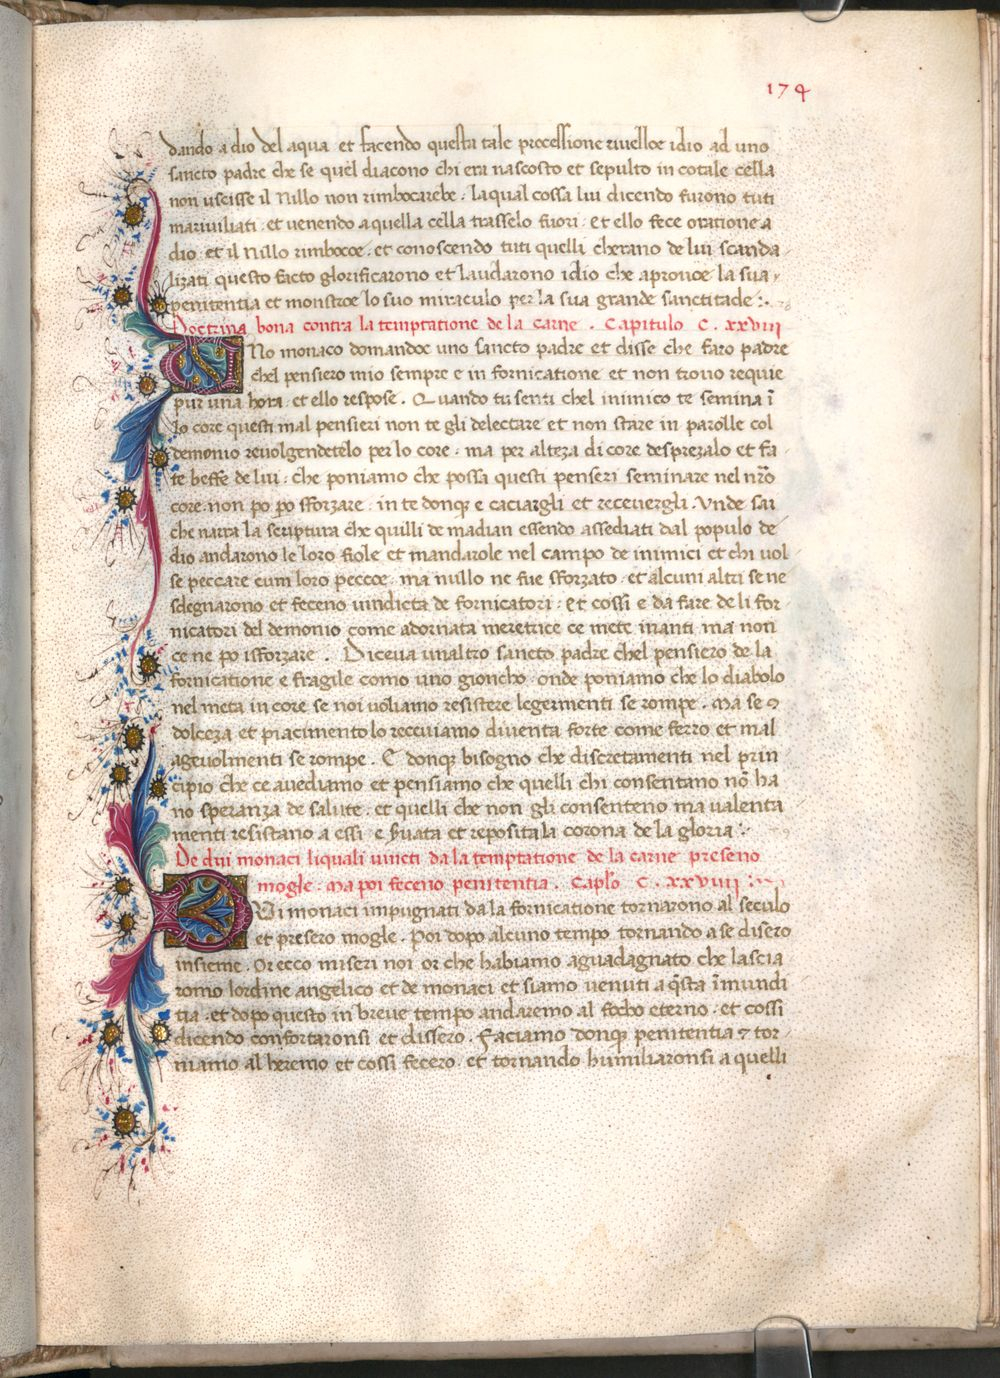 174
dando a dio del aqua et facendo questa tale processione rivelloe idio ad uno
sancto padre che se quel diacono chi era nascosto et sepulto in cotale cella
non uscisse il Nillo non rimbocarebe · la qual cossa lui dicendo furono tuti
maraviliati · et venendo a quella cella trasselo fuori · et ello fece oratione a
dio · et il Nillo rimbocoe · et conoscendo tuti quelli cherano de lui scanda
lizati questo facto glorificarono et laudarono idio che aprovoe la sua
penitentia et monstroe lo suo miraculo per la sua grande sanctitade :·
Doctrina bona contra la temptatione de la carne . Capitulo C . xxviii
UNo monaco domandoe uno sancto padre et disse che faro padre
chel pensiero mio sempre e in fornicatione et non trovo requie
pur una hora · et ello respose . Quando tu senti chel inimico te semina ī
lo core questi mal pensieri non te gli delectare et non stare in parolle col
demonio revolgendetelo per lo core · ma per alteza di core desprezalo et fa
te beffe de lui · che poniamo che possa questi penseri seminare nel nr̄o
core · non po po sforzare · in te donq̃ e caciargli et recevergli . Unde sai
che narra la scriptura che quilli de madian essendo assediati dal populo de
dio andarono le loro fiole et mandarole nel campo de inimici et chi vol
se peccare cum loro peccoe · ma nullo ne fue sforzato · et alcuni altri se ne
sdegnarono et feceno vindicta de fornicatori · et cossi e da fare de li for
nicatori del demonio come adornata meretrice ce mete inanti ma non
ce ne po isforzare . Diceva unaltro sancto padre chel pensiero de la
fornicatione e fragile como uno gioncho · onde poniamo che lo diabolo
nel meta in core se noi voliamo resistere legermenti se rompe . Ma se ↄ
dolceza et piacimento lo receviamo diventa forte come ferro et mal
agevolmenti se rompe . E donq̃ bisogno che discretamenti nel prin
cipio che ce avediamo et pensiamo che quelli chi consentano nō ha
no speranza de salute · et quelli che non gli consenteno ma valenta
menti resistano a essi e svata et reposita la corona de la gloria :·
De dui monaci li quali vincti da la temptatione de la carne preseno
mogle · ma poi feceno penitentia . Caplō C . xxviiii :·
DUi monaci impugnati da la fornicatione tornarono al seculo
et presero mogle . Poi dopo alcuno tempo tornando a se disero
insieme . Or ecco miseri noi or che habiamo aguadagnato che lascia
romo lordine angelico et de monaci et siamo venuti a q̄sta īmundi
tia · et dopo questo in breve tempo andaremo al focho eterno · et cossi
dicendo confortaronsi et dissero . Faciamo donq̃ penitentia ⁊ tor
niamo al heremo et cossi fecero · et tornando humiliaronsi a quelli